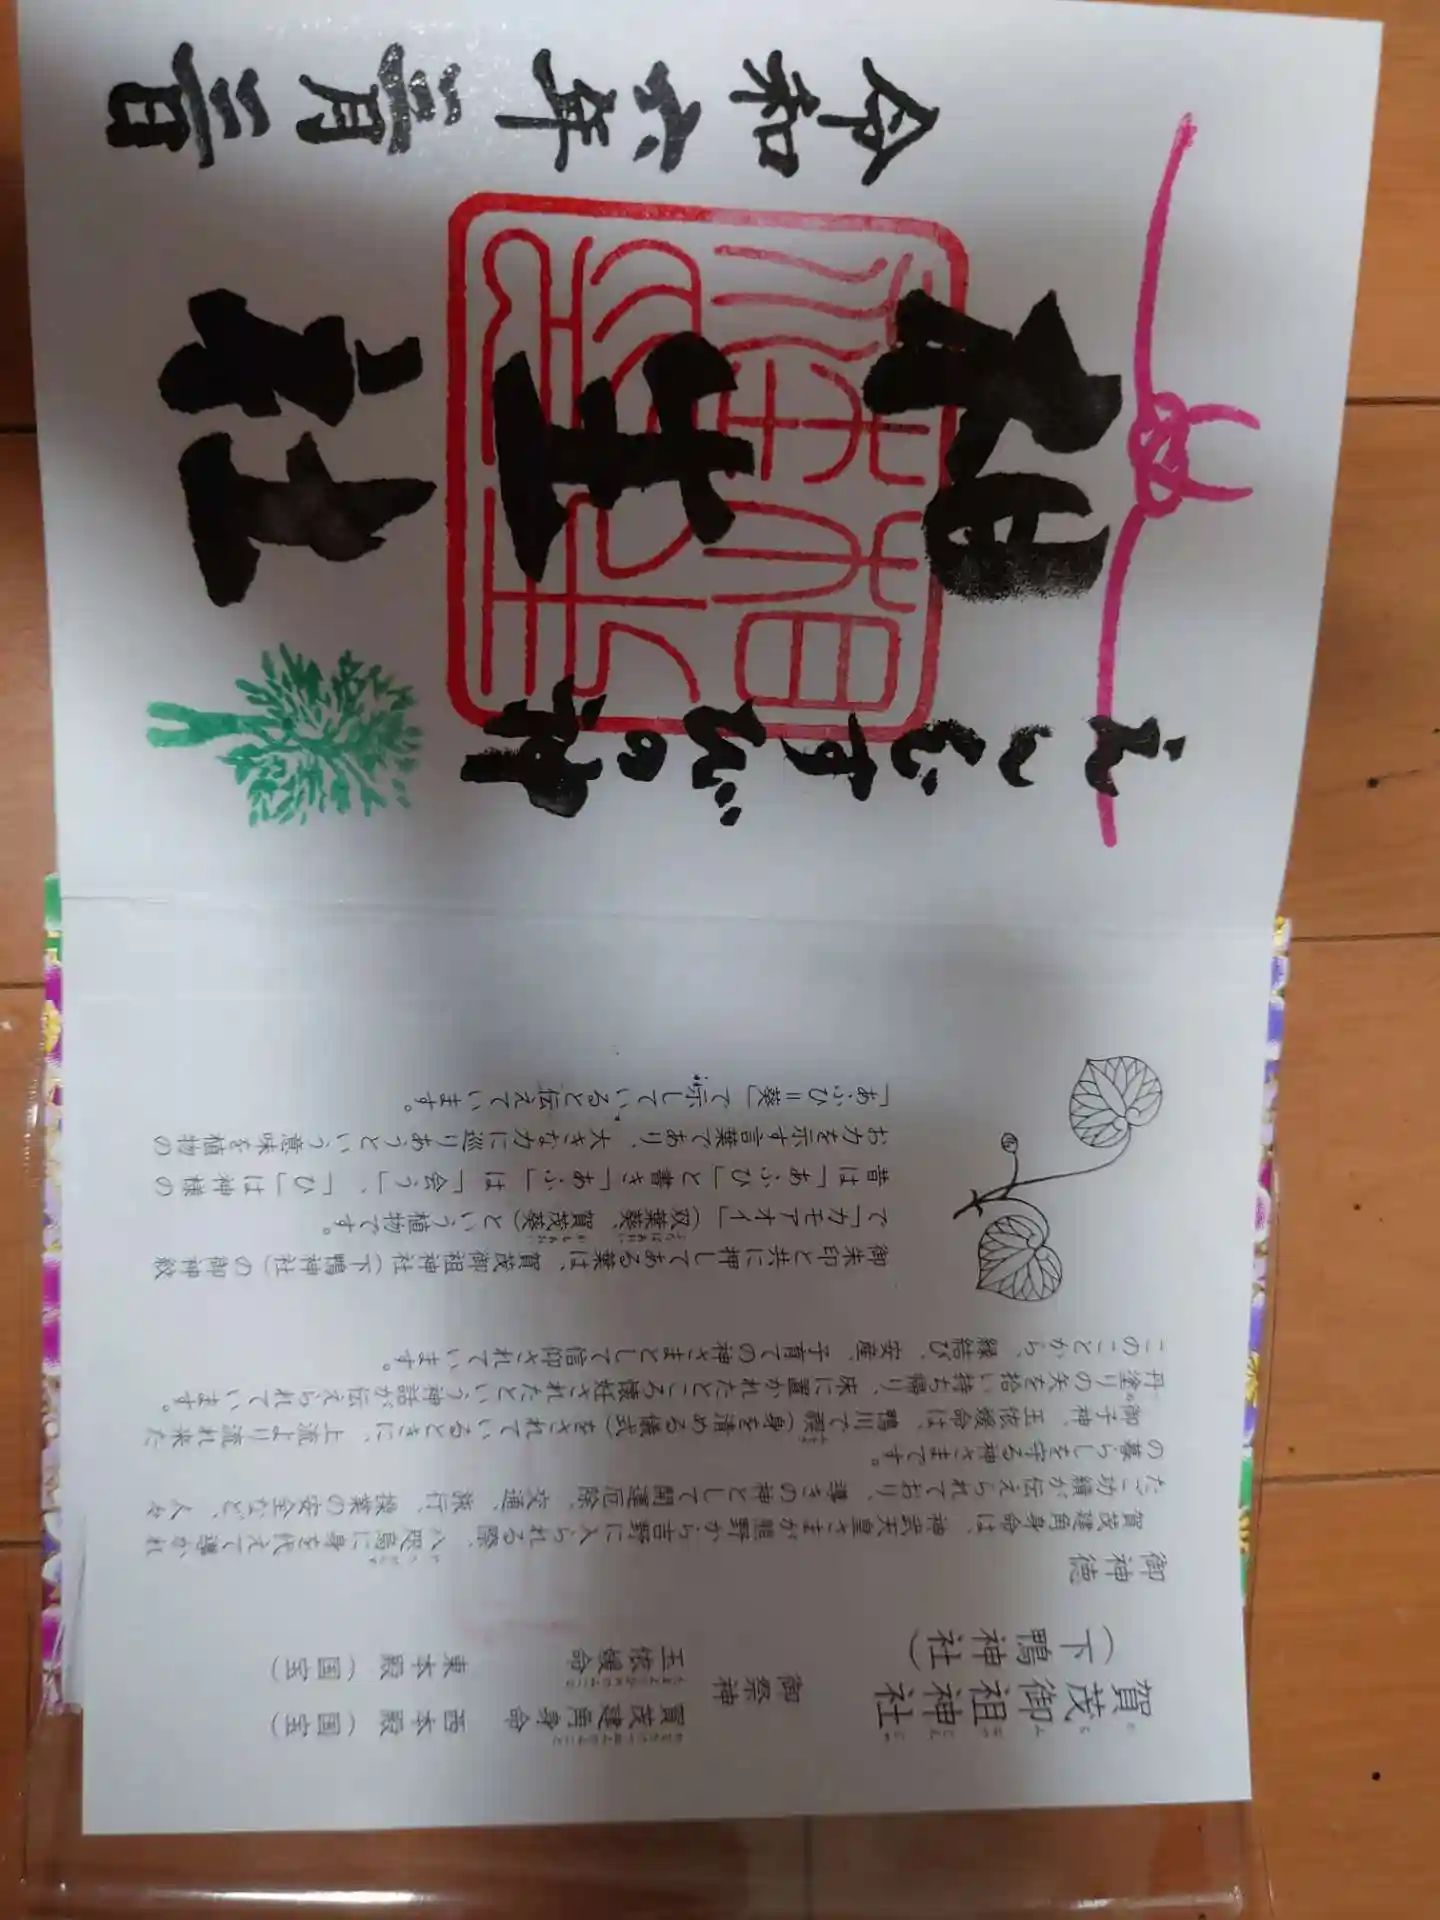 令和六年三月三日
相生社
えんむすびの神
賀茂御祖神社
(下鴨神社)
御祭神
賀茂建角身命 西本殿(国宝)
玉依媛命 東本殿(国宝)
御神徳
賀茂建角身命は、神武天皇さまが熊野から吉野に入られる際、八咫烏に身を代えて導かれ
たご功績が伝えられており、導きの神として開運厄除、交通、旅行、操業の安全など、人々
の暮らしを守る神さまです。
御子神、玉依媛命は、鴨川で禊(身を清める儀式)をされているときに、上流より流れ来た
丹塗りの矢を拾い持ち帰り、床に置かれたところ懐妊されたという神話が伝えられています。
このことから、縁結び、安産、子育ての神さまとして信仰されています。
御朱印と共に押してある葉は、賀茂御祖神社(下鴨神社)の御神紋
で「カモアオイ」(双葉葵、賀茂葵)という植物です。
昔は「あふひ」と書き「あふ」は「会う」、「ひ」は神様の
お力を示す言葉であり、大きな力に巡りあうという意味を植物の
「あふひ=葵」で示していると伝えています。